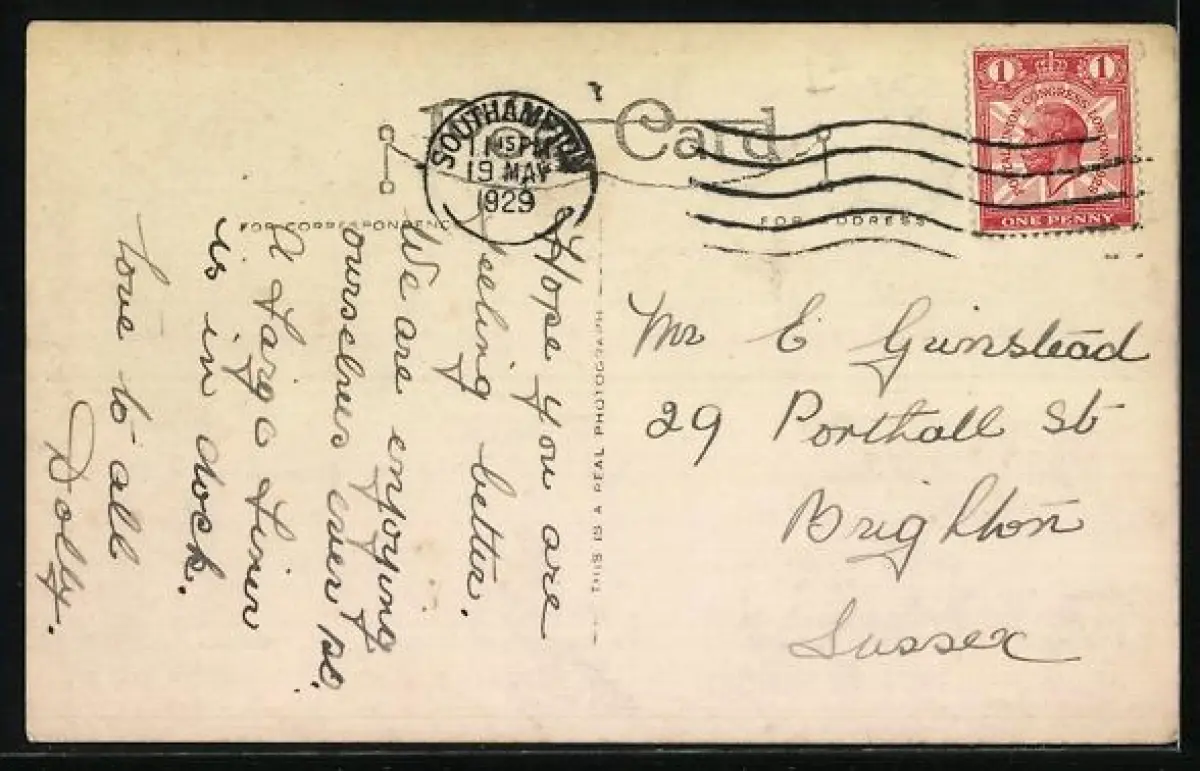 Post Card
SOUTHAMPTON
11 15 PM
19 MAY
1929
1 1
POSTAL UNION CONGRESS LONDON 1929
ONE PENNY
FOR CORRESPONDENCE
FOR ADDRESS
THIS IS A REAL PHOTOGRAPH
Hope you are
feeling better.
We are enjoying
ourselves ever so.
A large liner
is in dock.
Love to all
Dolly.
Mr E Grinstead
29 Porthall St
Brighton
Sussex